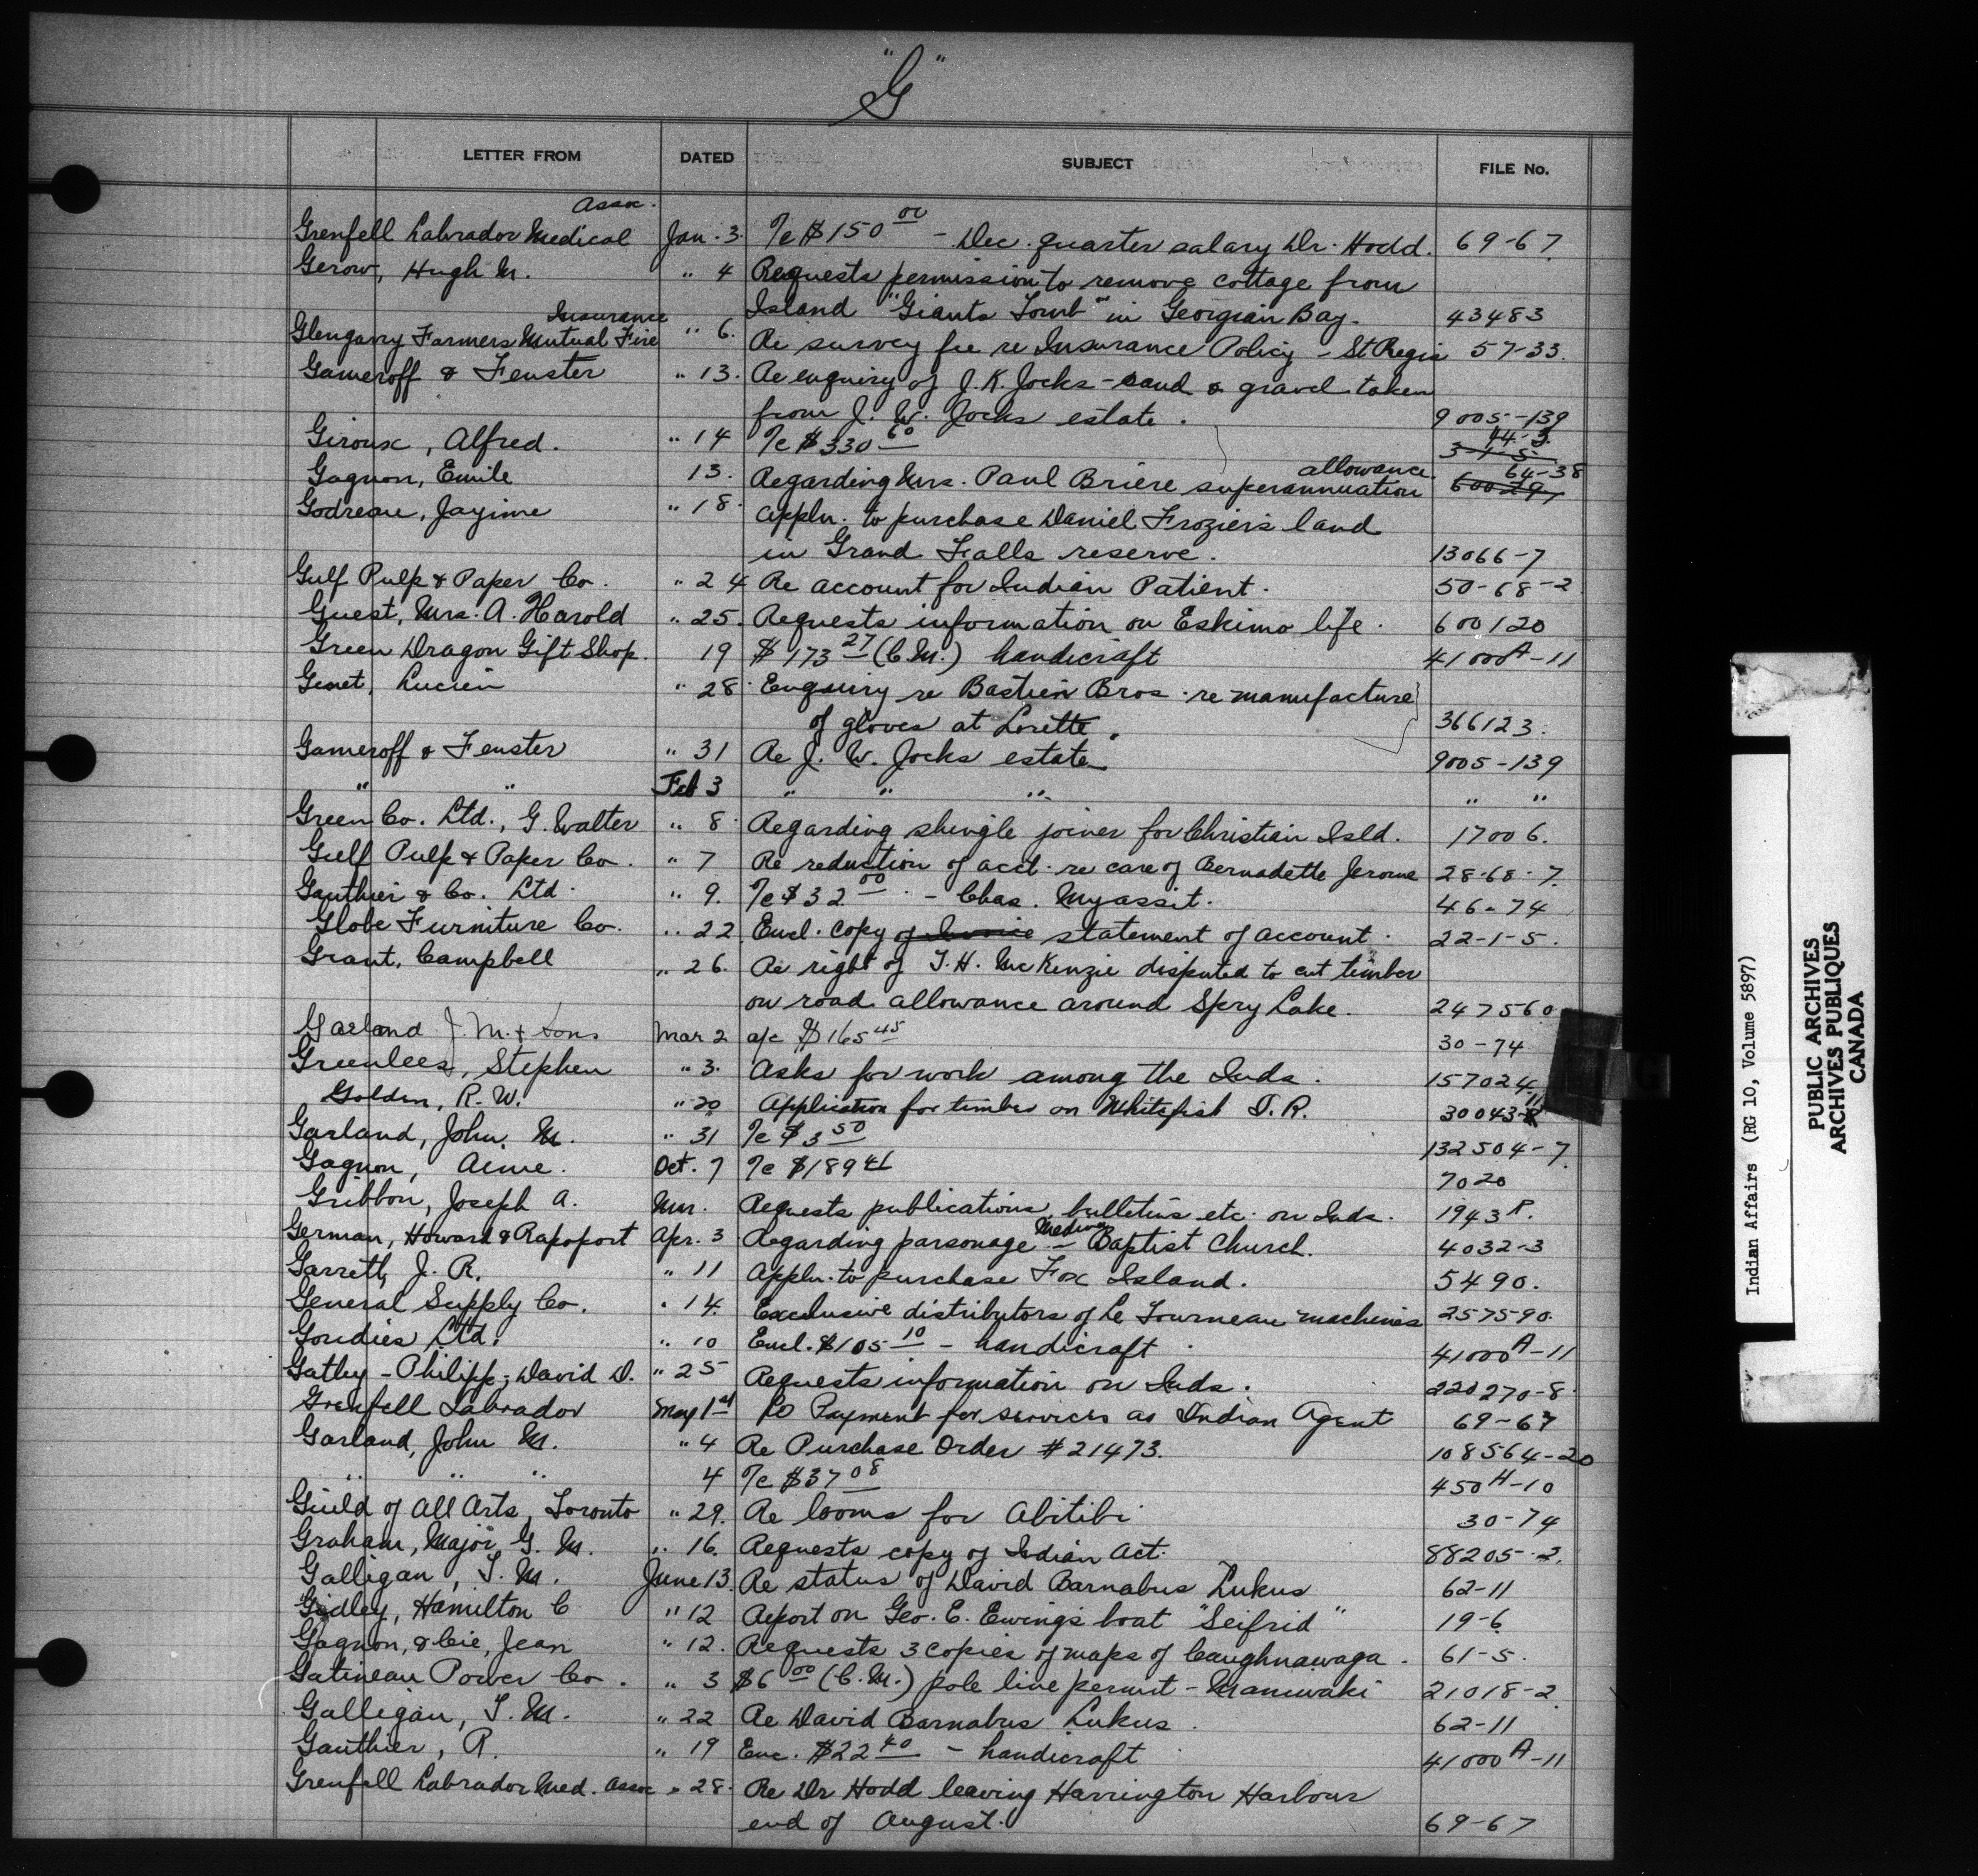 "G"
LETTER FROM DATED SUBJECT FILE No.
Assoc.
Grenfell Labrador Medical Jan. 3. a/c $150 00 - Dec. quarter salary Dr. Hodd. 69-67.
Gerow, Hugh M. " 4 Requests permission to remove cottage from
Island "Giants Tomb" in Georgian Bay. 43483
Insurance
Glengarry Farmers Mutual Fire " 6. Re survey fee re Insurance Policy - St Regis 57-33.
Gameroff & Fenster " 13. Re enquiry of J. K. Jocks - sand & gravel taken
from J. W. Jocks estate. 9005-139
Giroux, Alfred. " 14 a/c $330 60 44-3.
3-1-5
Gagnon, Emile 13. Regarding Mrs. Paul Brière superannuation allowance 64-38
60029
Godreau, Jayime " 18. Appln. to purchase Daniel Frozier's land
in Grand Falls reserve. 13066-7
Gulf Pulp & Paper Co. " 24 Re account for Indian Patient. 50-68-2
Guest, Mrs. A. Harold " 25. Requests information on Eskimo life. 600120
Green Dragon Gift Shop. 19 $173 27 (C.M.) handicraft 41000A-11
Genet, Lucien " 28. Enquiry re Bastien Bros. re manufacture
of gloves at Lorette. 366123.
Gameroff & Fenster " 31 Re J. W. Jocks estate 9005-139
" " Feb 3 " " " " "
Green Co. Ltd., G. Walter " 8. Regarding shingle joiner for Christian Isld. 17006.
Gulf Pulp & Paper Co. " 7 Re reduction of acct. re care of Bernadette Jerome 28-68-7.
Gauthier & Co. Ltd. " 9. a/c $32 00 - Chas. Myassit. 46-74
Globe Furniture Co. " 22 Encl. copy of Invoice statement of account. 22-1-5.
Grant, Campbell " 26. Re right of T. H. McKenzie disputed to cut timber
on road allowance around Spry Lake. 247560
Garland J. M. & Sons Mar 2 a/c $165 45 30-74
Greenlees, Stephen " 3. Asks for work among the Inds. 157024
Golden, R. W. " 20 Application for timber on Whitefish I. R. 30043-
Garland, John. M. " 31 a/c $3 50 132504-7.
Gagnon, Aime. Oct. 7 a/c $189 41 7020
Gribbon, Joseph A. Mar. Requests publications, bulletins etc. on Inds. 1943 R.
German, Howard & Rapoport Apr. 3 Regarding parsonage - Medina Baptist Church. 4032-3
Garrett, J. R. " 11 Appln. to purchase Fox Island. 5490.
General Supply Co. " 14. Exclusive distributors of Le Tourneau machines 257590.
Goudies Ltd. " 10 Encl. $105 10 - handicraft. 41000A-11
Gathy-Philipp, David D. " 25 Requests information on Inds. 220270-8.
Grenfell Labrador May 1st Re Payment for services as Indian Agent 69-67
Garland, John M. " 4 Re Purchase Order #21473. 108564-20
" " " 4 a/c $37 08 450H-10
Guild of All Arts, Toronto " 29. Re looms for Abitibi 30-74
Graham, Major G. M. " 16. Requests copy of Indian Act. 88205-2.
Galligan, T. M. June 13. Re status of David Barnabus Lukus 62-11
Gidley, Hamilton C. " 12 Report on Geo. E. Ewing's boat "Seifrid" 19-6
Gagnon, & Cie, Jean " 12. Requests 3 copies of maps of Caughnawaga. 61-5.
Gatineau Power Co. " 3 $6 00 (C.M.) pole line permit - Maniwaki 21018-2.
Galligan, T. M. " 22 Re David Barnabus Lukus. 62-11
Gauthier, R. " 19 Enc. $22 40 - handicraft. 41000A-11
Grenfell Labrador Med. Assoc " 28. Re Dr Hodd leaving Harrington Harbour
end of August. 69-67
G
Indian Affairs (RG 10, Volume 5897)
PUBLIC ARCHIVES
ARCHIVES PUBLIQUES
CANADA